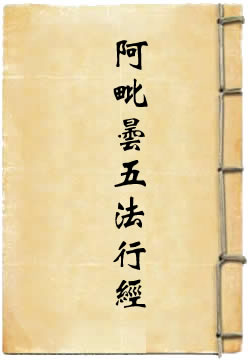 阿毗曇五法行經